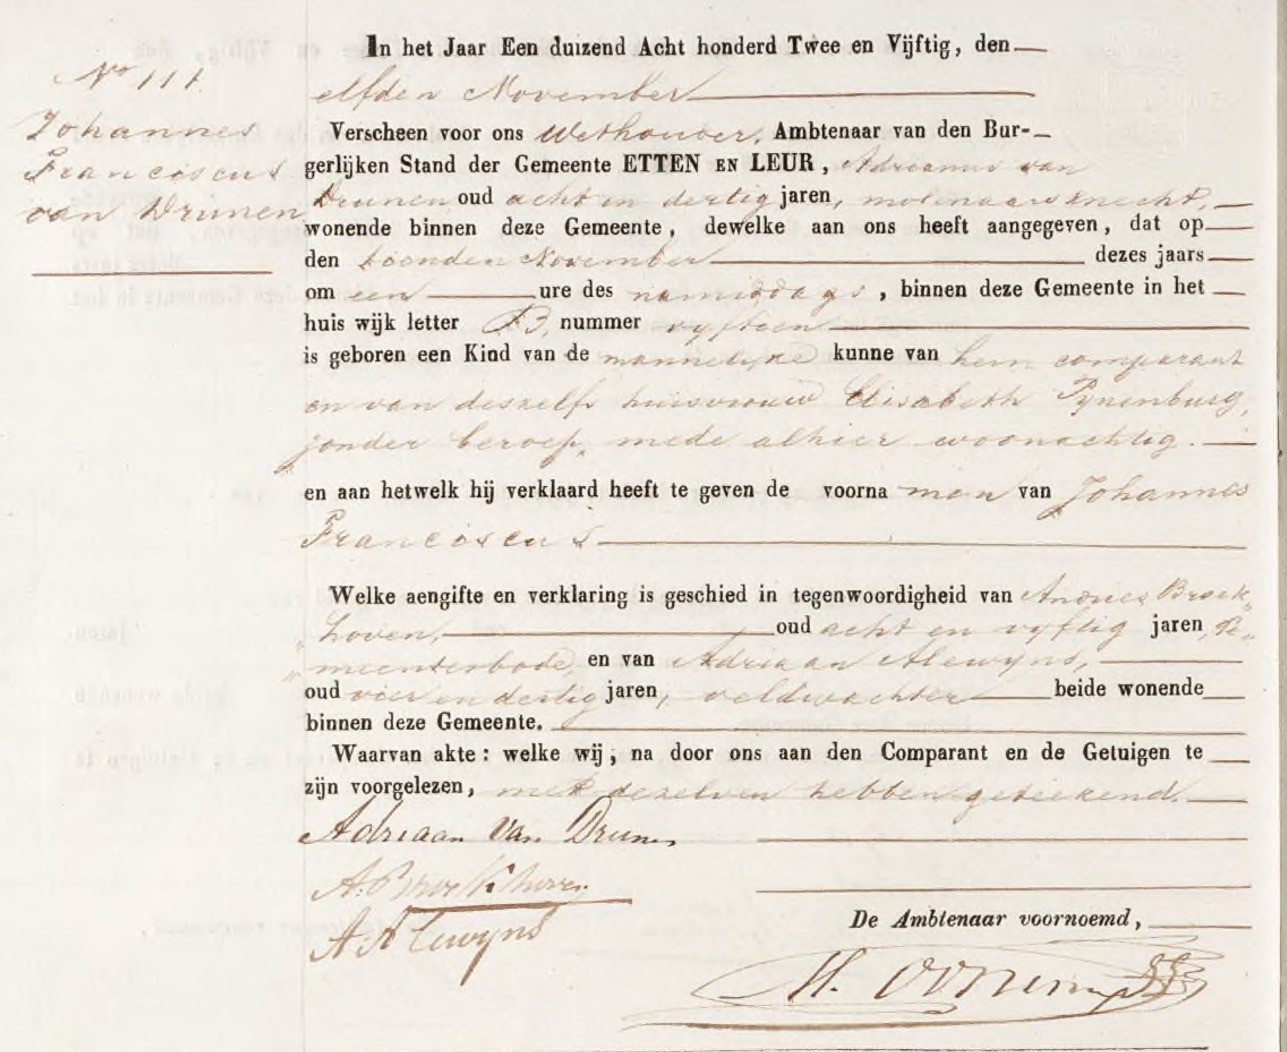 In het Jaar Een duizend Acht honderd Twee en Vijftig, den
elfden November
No 111.
Johannes
Franciscus
van Drunen
Verscheen voor ons Wethouder, Ambtenaar van den Bur-
gerlijken Stand der Gemeente ETTEN EN LEUR, Adrianus van
Drunen oud acht en dertig jaren, molenaarsknecht,
wonende binnen deze Gemeente, dewelke aan ons heeft aangegeven, dat op
den tienden November dezes jaars
om een ure des namiddags, binnen deze Gemeente in het
huis wijk letter B, nummer vyftien
is geboren een Kind van de mannelyke kunne van hem comparant
en van deszelfs huisvrouw Elisabeth Pynenburg,
zonder beroep, mede alhier woonachtig.
en aan hetwelk hij verklaard heeft te geven de voorna men van Johannes
Franciscus
Welke aengifte en verklaring is geschied in tegenwoordigheid van Andries Broek„
„hoven, oud acht en vyftig jaren, Ge„
„meentebode, en van Adriaan Alewyns,
oud vier en dertig jaren, veldwachter beide wonende
binnen deze Gemeente.
Waarvan akte: welke wij, na door ons aan den Comparant en de Getuigen te
zijn voorgelezen, met dezelven hebben geteekend.
Adriaan Van Drunen
A. Broekhoven
A. Alewyns
De Ambtenaar voornoemd,